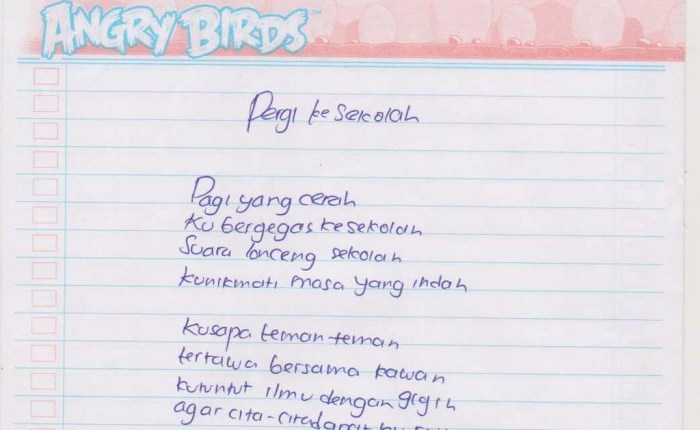 ANGRY BIRDS™
Pergi ke Sekolah
Pagi yang cerah
Ku bergegas ke sekolah
Suara lonceng sekolah
kunikmati masa yang indah
Kusapa teman-teman
tertawa bersama kawan
kutuntut ilmu dengan gigih
agar cita-cita